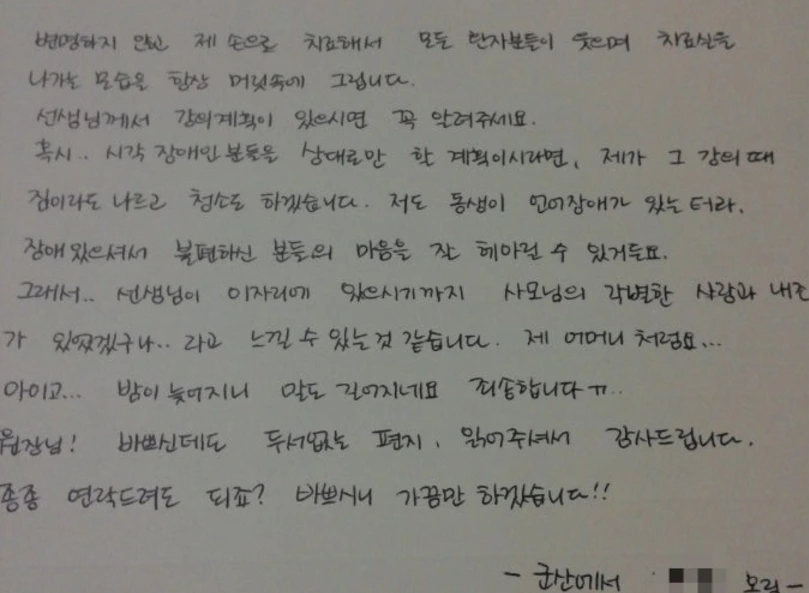 변명하지 않고 제 손으로 치료해서 모든 환자분들이 웃으며 치료실을
나가는 모습을 항상 머릿속에 그립니다.
선생님께서 강의계획이 있으시면 꼭 알려주세요.
혹시.. 시각 장애인 분들을 상대로만 한 계획이시라면, 제가 그 강의 때
짐이라도 나르고 청소도 하겠습니다. 저도 동생이 언어장애가 있는 터라,
장애 있으셔서 불편하신 분들의 마음을 잘 헤아릴 수 있거든요.
그래서.. 선생님이 이자리에 있으시기까지 사모님의 각별한 사랑과 내조
가 있었겠구나.. 라고 느낄 수 있는것 같습니다. 제 어머니 처럼요...
아이고... 밤이 늦어지니 말도 길어지네요 죄송합니다ㅠ..
원장님! 바쁘신데도 두서없는 편지, 읽어주셔서 감사드립니다.
종종 연락드려도 되죠? 바쁘시니 가끔만 하겠습니다!!
- 군산에서 올림 -